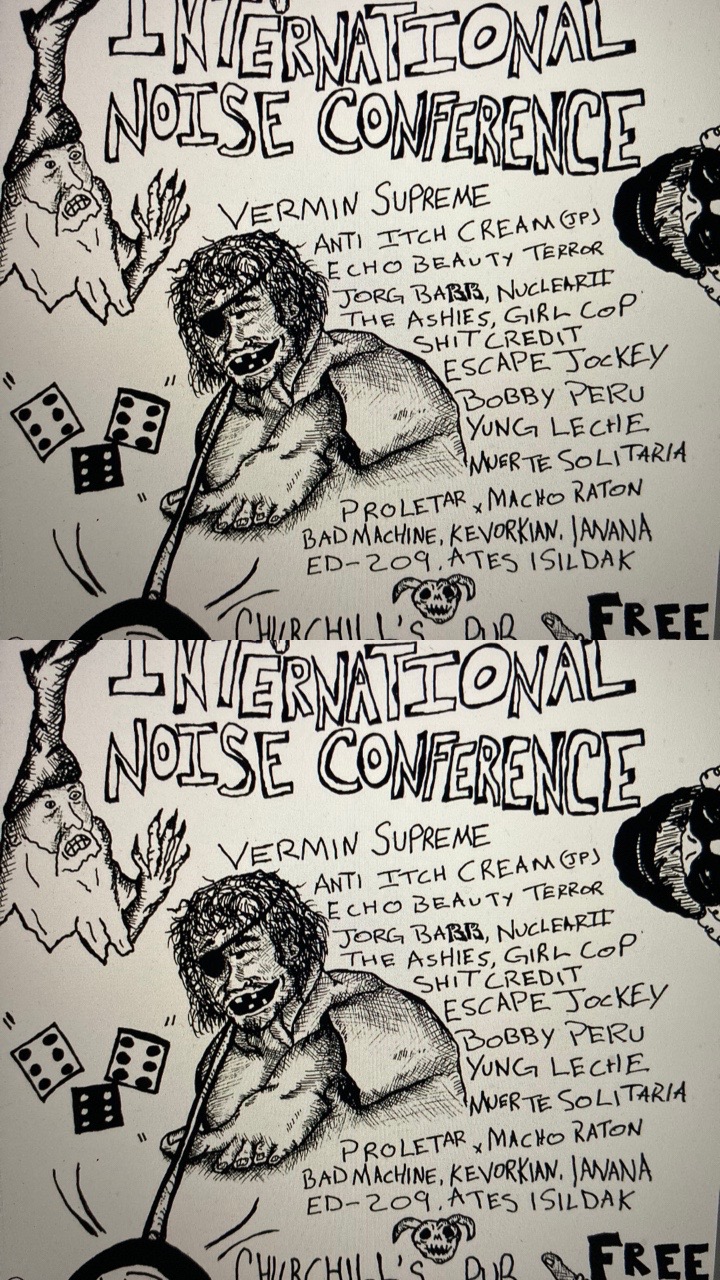 INTERNATIONAL
NOISE CONFERENCE
VERMIN SUPREME
ANTI ITCH CREAM (JP)
ECHO BEAUTY TERROR
JORG BABB, NUCLEARII
THE ASHIES, GIRL COP
SHIT CREDIT
ESCAPE JOCKEY
BOBBY PERU
YUNG LECHE
MUERTE SOLITARIA
PROLETAR x MACHO RATON
BAD MACHINE, KEVORKIAN, JANANA
ED-209, ATES ISILDAK
CHURCHILL'S PUB FREE
INTERNATIONAL
NOISE CONFERENCE
VERMIN SUPREME
ANTI ITCH CREAM (JP)
ECHO BEAUTY TERROR
JORG BABB, NUCLEARII
THE ASHIES, GIRL COP
SHIT CREDIT
ESCAPE JOCKEY
BOBBY PERU
YUNG LECHE
MUERTE SOLITARIA
PROLETAR x MACHO RATON
BAD MACHINE, KEVORKIAN, JANANA
ED-209, ATES ISILDAK
CHURCHILL'S PUB FREE